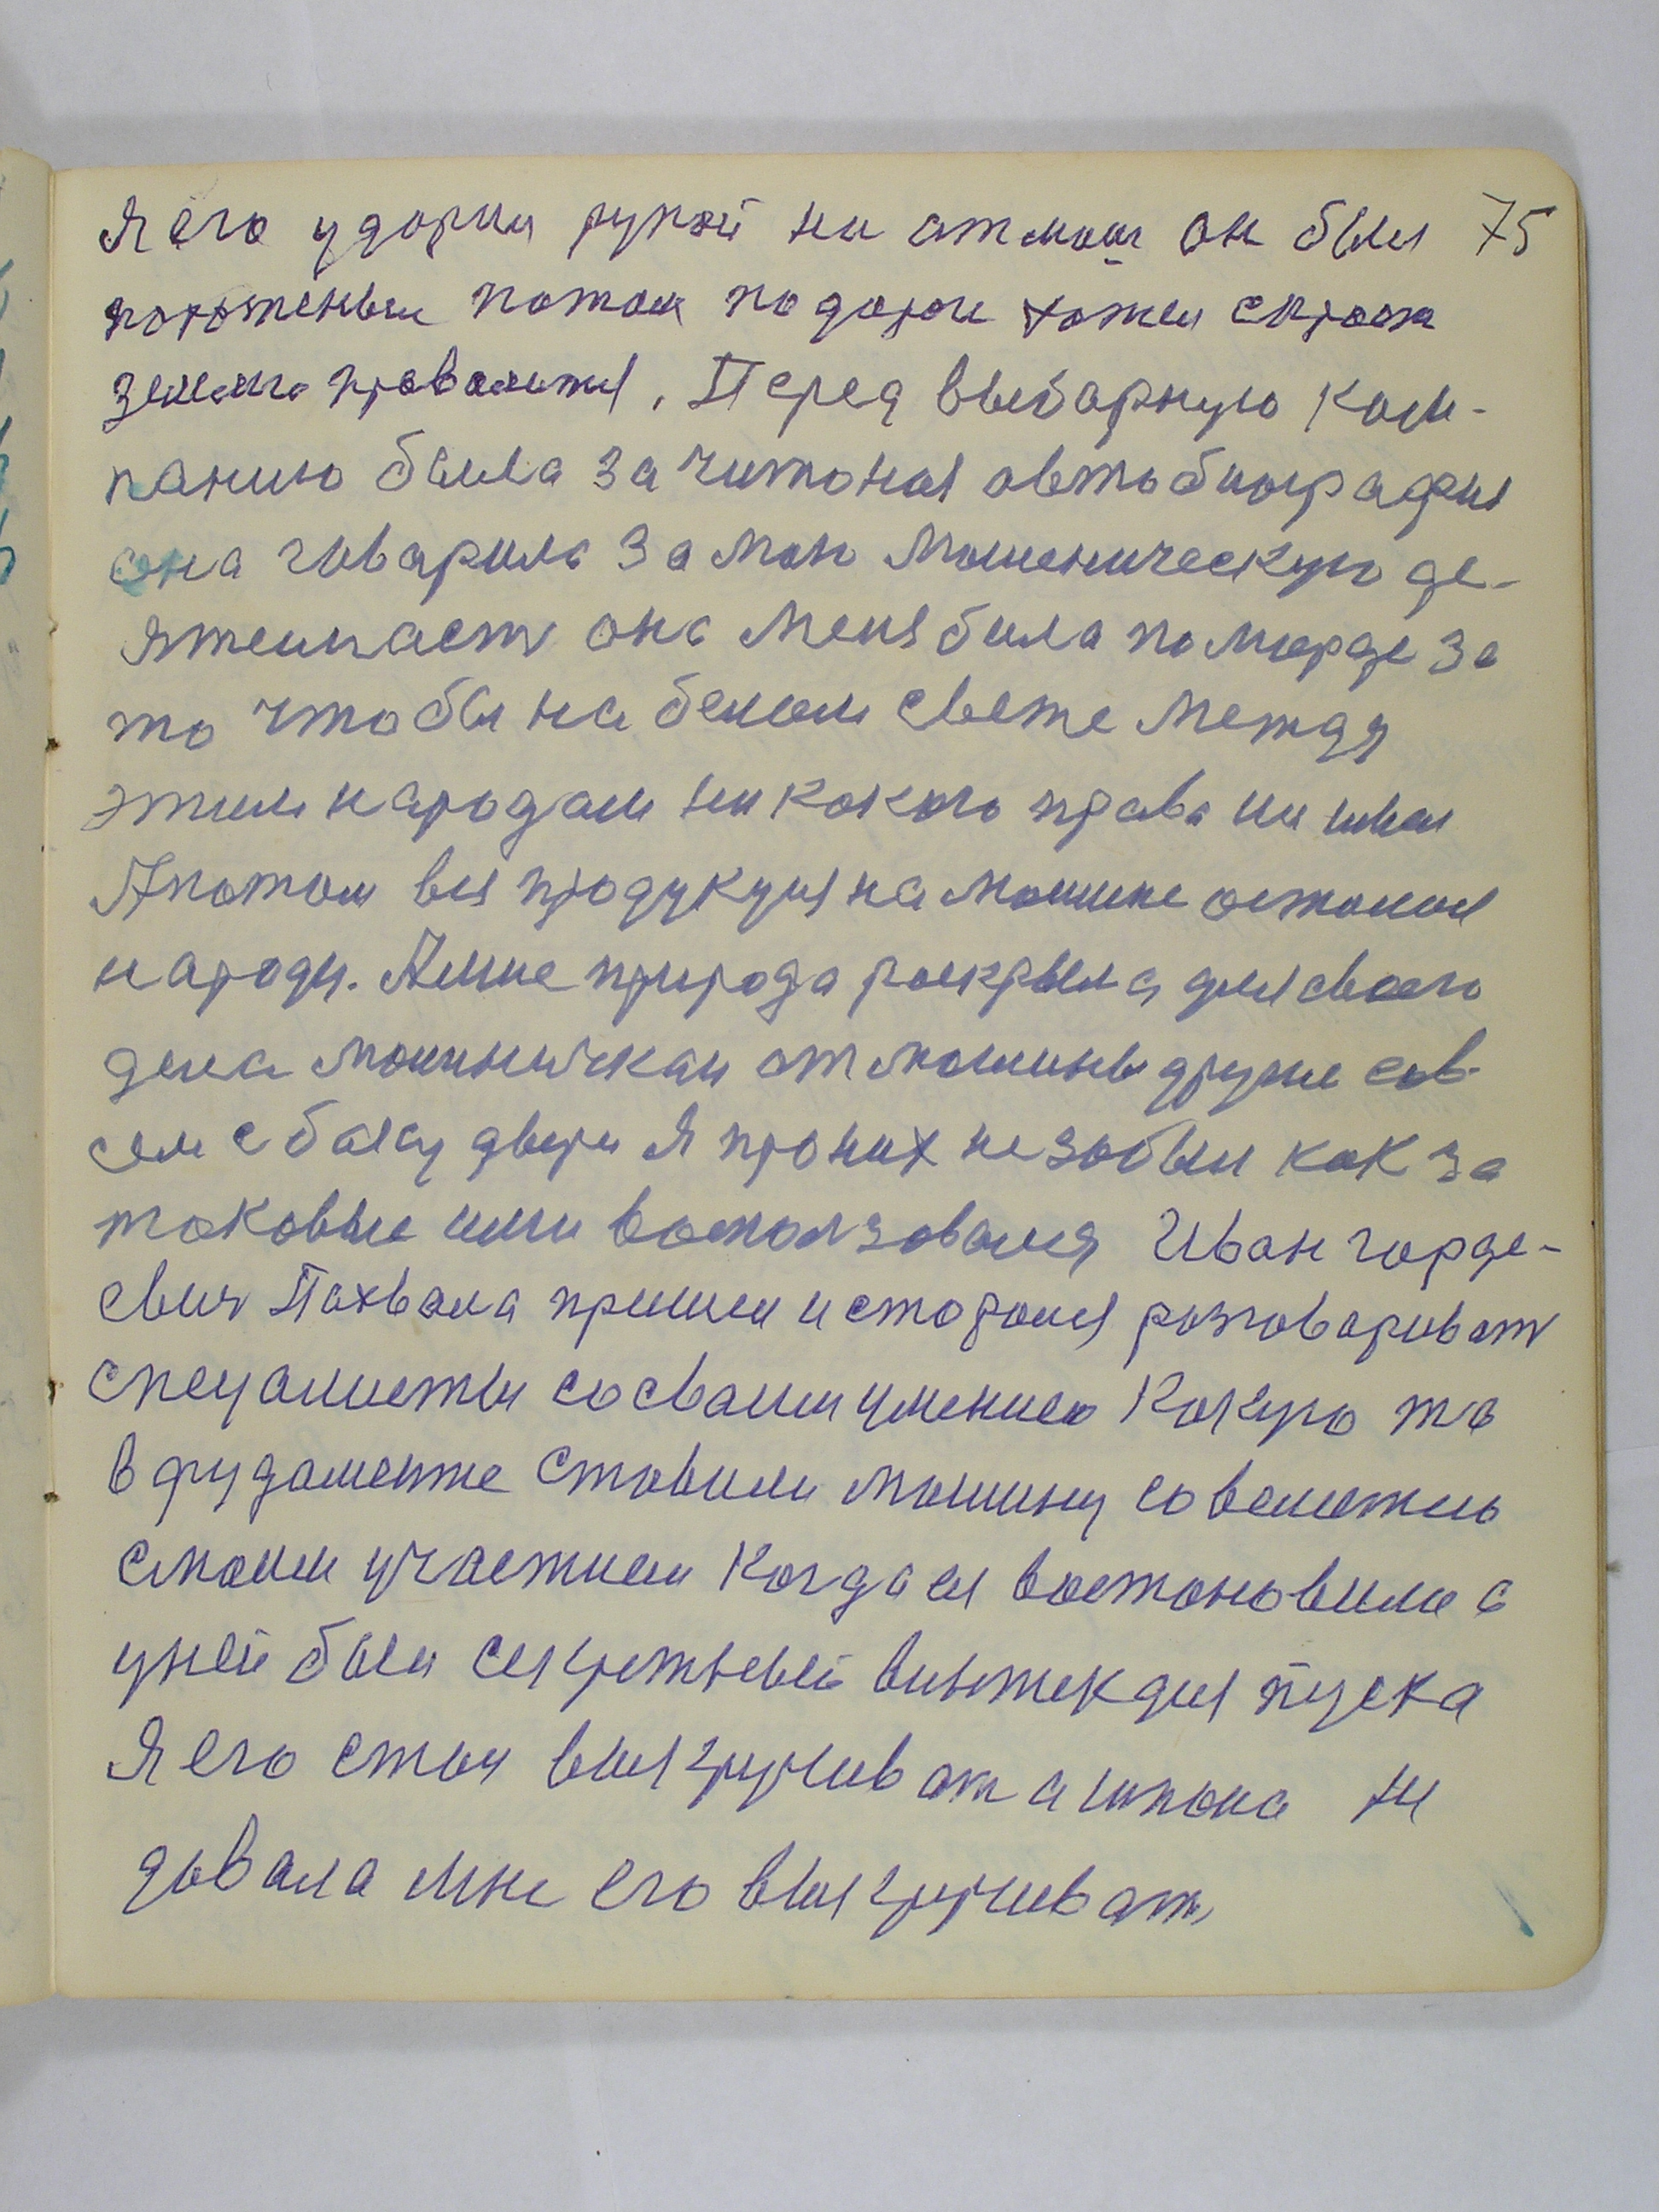 Я его ударил рукой ни ат маш он был 75
поражением потом подороги хотел скрозь
землю провалится. Перед выбарную ком-
панию была зачитоная автобиография
она говарила за мою мошеническую де-
ятельность она меня била по морде за
то чтобы на белом свете между
этим народам ни какого права ни имел
А потом вся продукция на машине осталася
народу. А мне природа раскрыла для своего
дела мошеническаи от машины другие сов-
сем с баку двери Я про них не забыл как за
таковые или вospользовался Иван горде-
евич Пахвала пришел и стоялся разговариват
спецалисты со своим умением Какую то
в фудаменте ставили машину совместно
смоим участием Когда ея востоновили а
уней был секретный винтик для пуска
Я его стал выкручиват а шпона ни
давала мне его выкручиват,